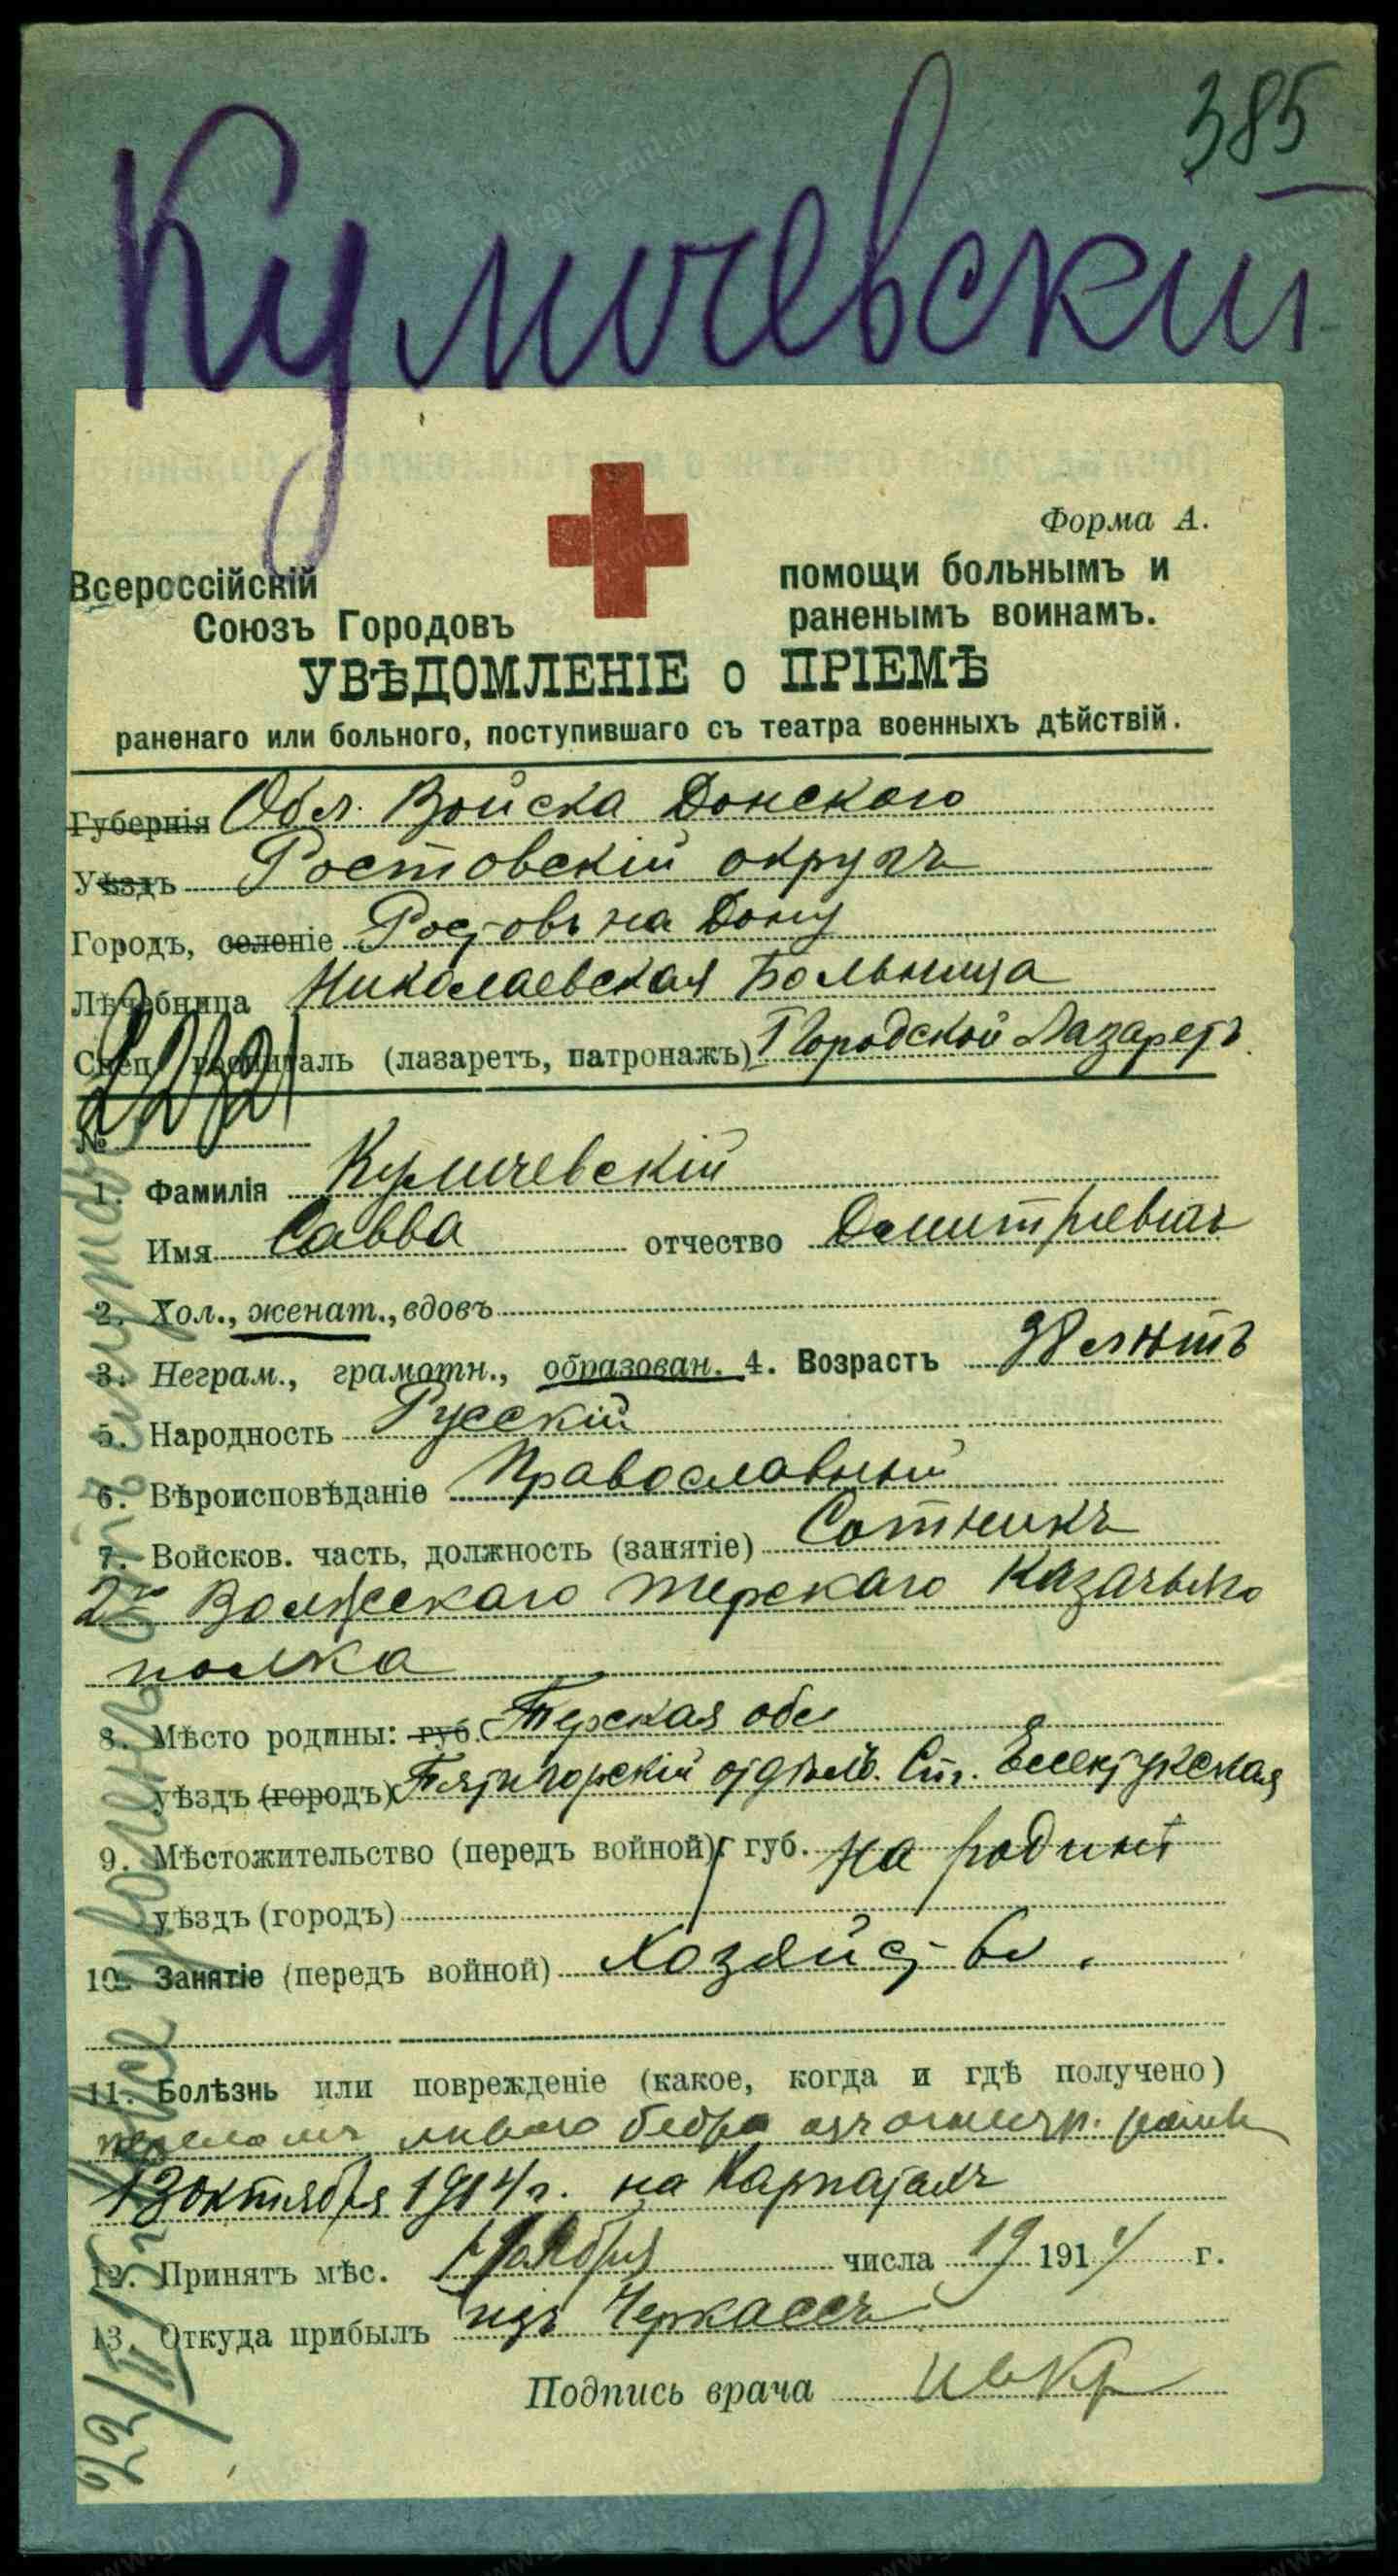 385
Куличевский
Форма А.
Всероссійскій
Союзъ Городовъ
помощи больнымъ и
раненымъ воинамъ.
УВѢДОМЛЕНІЕ о ПРІЕМѢ
раненаго или больного, поступившаго съ театра военныхъ дѣйствій.
Губернія Обл. Войска Донского
Уѣздъ Ростовскій округъ
Городъ, селеніе Ростовъ на Дону
Лѣчебница Николаевская Больница
Спец. госпиталь (лазаретъ, патронажъ) Городской Лазаретъ
№
1. Фамилія Куличевскій
Имя Савва отчество Дмитріевичъ
2. Хол., женат., вдовъ
3. Неграм., грамотн., образован. 4. Возрастъ 38 лѣтъ
5. Народность Русскій
6. Вѣроисповѣданіе Православный
7. Войсков. часть, должность (занятіе) Сотникъ
2го Волжскаго терскаго Казачьяго
полка
8. Мѣсто родины: губ. Терская обл
уѣздъ (городъ) Пятигорскій отдѣлъ. Ст. Ессентукская
9. Мѣстожительство (передъ войной) губ. на родинѣ
уѣздъ (городъ)
10. Занятіе (передъ войной) Хозяйство.
11. Болѣзнь или поврежденіе (какое, когда и гдѣ получено)
переломъ лѣваго бедра огнестр. рана
13 октября 1914 г. на Карпатахъ
12. Принятъ мѣс. Ноября числа 19 1914 г.
13. Откуда прибылъ изъ Черкассъ
Подпись врача
23/II 15 г. уволенъ